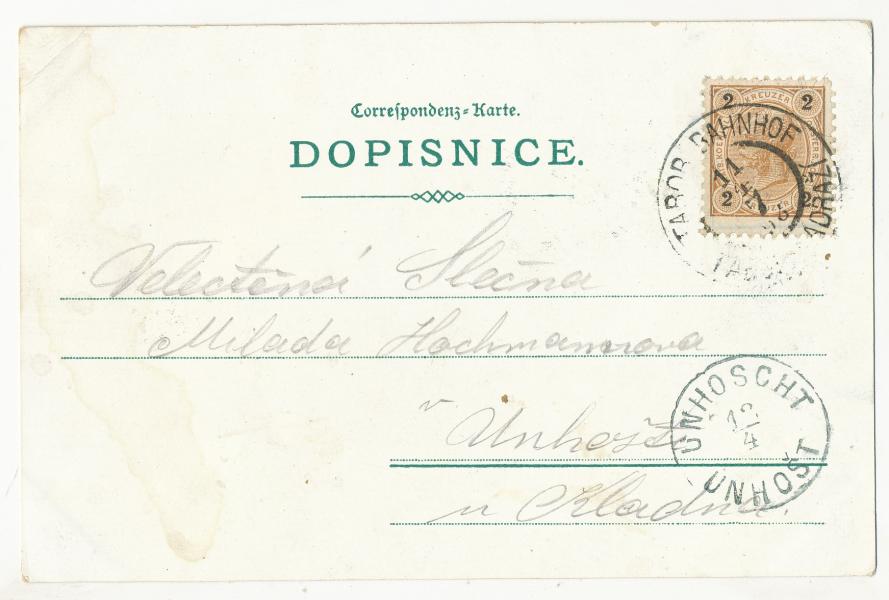 Correspondenz-Karte.
DOPISNICE.
2 KREUZER 2
2 KREUZER 2
TABOR BAHNHOF
11
4
TABOR
Velectěná Slečna
Milada Hochmannova
v Unhošti
u Kladna.
UNHOSCHT
12
4
UNHOŠT